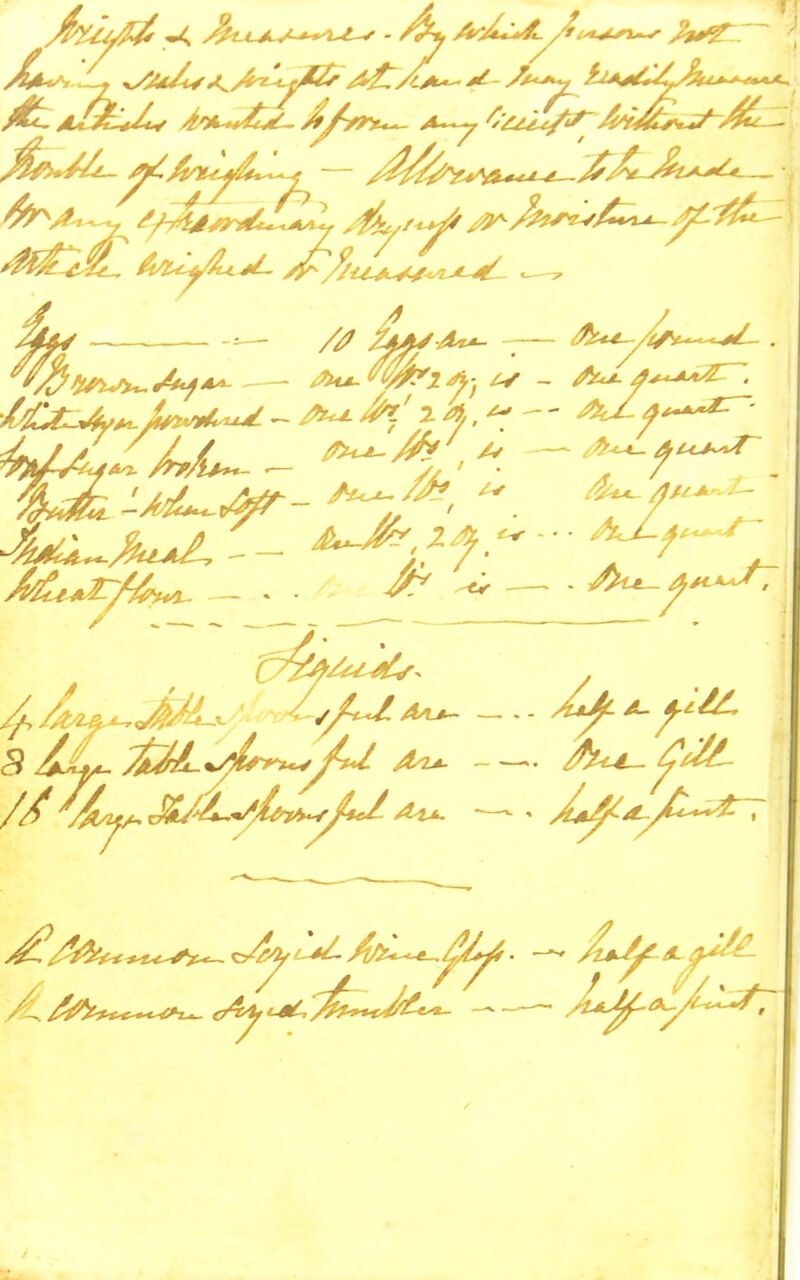 Weights & Measures - By which persons not
having scales & weights at hand may readily measure
the articles wanted to form any receipt, without the
trouble of weighing — Allowance to be made
for any extraordinary dryness or moisture of the
article weighed or measured —
Eggs — 10 Eggs are — One pound.
Brown Sugar — One lb 2 oz, is - One quart.
White Sugar powdered - One lb, 2 oz, is -- One quart
Loaf Sugar broken — One lb, is — One quart
Butter - when soft - One lb, is One quart
Indian Meal, -- One lb, 2 oz, is --- One quart
Wheat flour — . . One lb is — . One quart,
Liquids.
4 large Tablespoonsful are — .. half a gill
8 large tablespoonsful are - —. One Gill
16 large Tablespoonsful are — . half a pint,
A Common sizied wine Glass. — half a gill
A Common sizied Tumbler —— half a pint,